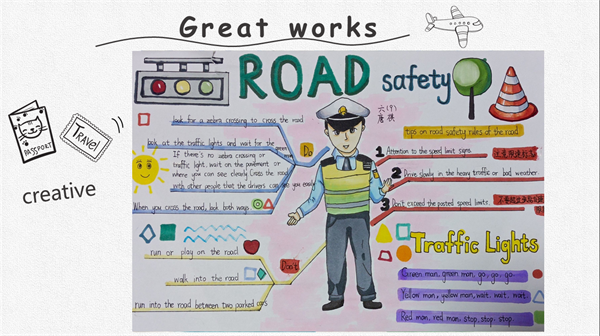 Great works
PASSPORT
TRAVEL
creative
ROAD safety
六(9)
look for a zebra crossing to cross the road
look at the traffic lights and wait for the green
If there's no zebra crossing or
traffic light, wait on the pavement or
where you can see clearly. Cross the road
with other people that the drivers can see you easily
When you cross the road, look both ways
Do
run or play on the road
walk into the road
run into the road between two parked cars
Don't
tips on road safety rules of the road
1 Attention to the speed limit signs
2 Drive slowly in the heavy traffic or bad weather
3 Don't exceed the posted speed limits.
Traffic Lights
Green man, green man, go, go, go.
Yellow man, yellow man, wait, wait, wait
Red man, red man, stop, stop, stop.